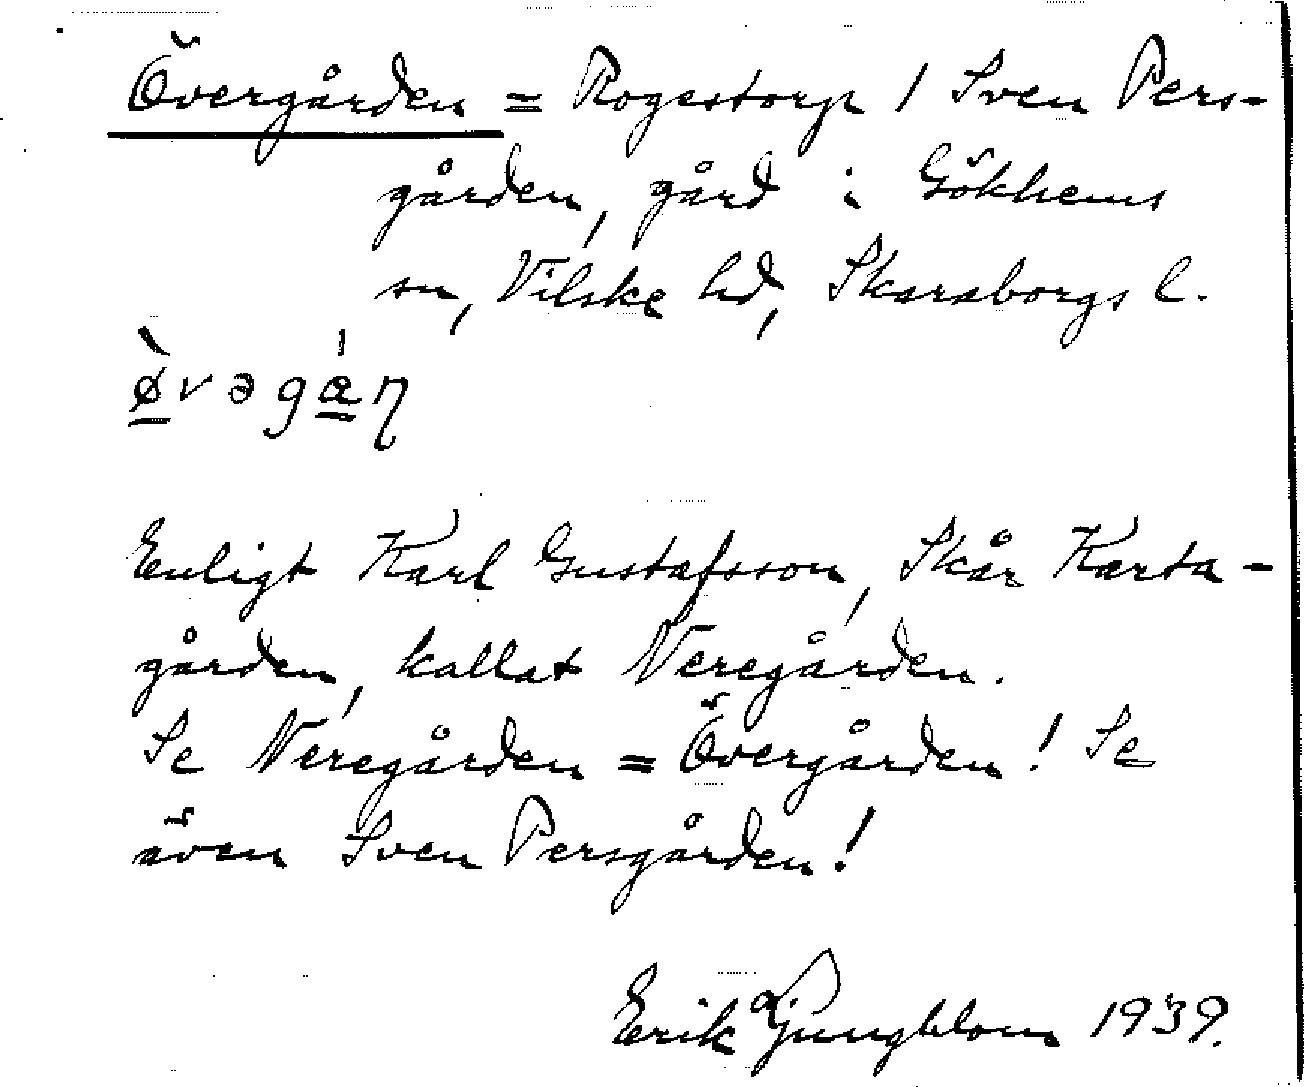 Övergården = Rogestorp 1 Sven Pers-
gården, gård i Gökhems
sn, Vilske hd, Skaraborgs l.
ø̀vəgǽɳ
Enligt Karl Gustafsson, Skår Karta-
gården, kallat Neregården.
Se Neregården = Övergården! Se
även Sven Persgården!
Erik Ljungblom 1939.